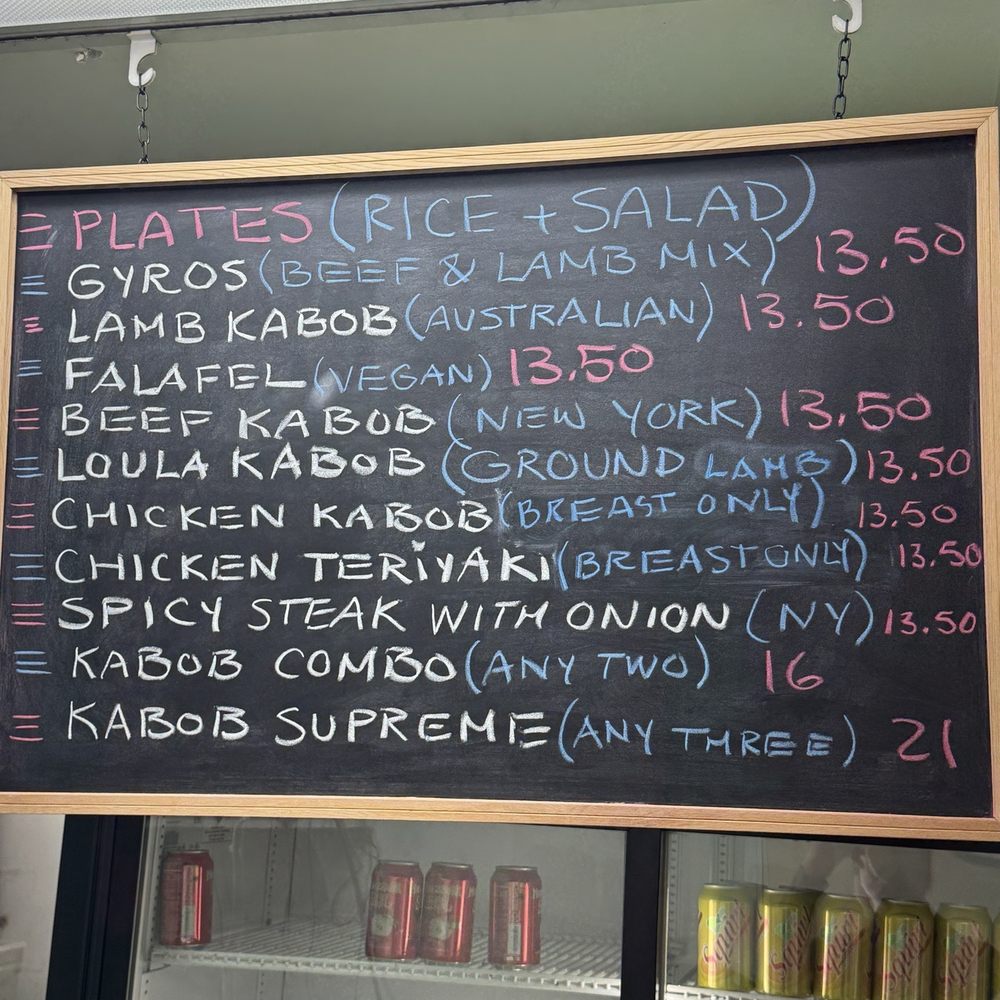 PLATES (RICE + SALAD)
GYROS (BEEF & LAMB MIX) 13.50
LAMB KABOB (AUSTRALIAN) 13.50
FALAFEL (VEGAN) 13.50
BEEF KABOB (NEW YORK) 13.50
LOULA KABOB (GROUND LAMB) 13.50
CHICKEN KABOB (BREAST ONLY) 13.50
CHICKEN TERiYAKI (BREAST ONLY) 13.50
SPICY STEAK WITH ONION (NY) 13.50
KABOB COMBO (ANY TWO) 16
KABOB SUPREME (ANY THREE) 21
Squirt Squirt Squirt Squirt Squirt